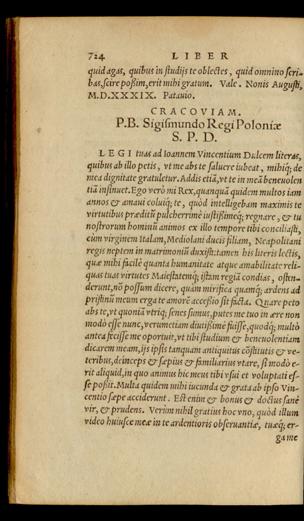 724 LIBER
quid agas, quibus in studijs te oblectes, quid omnino scri-
bas, scire possim, erit mihi gratum. Vale. Nonis Augusti,
M.D.XXXIX. Patauio.
CRACOVIAM.
P.B. Sigismundo Regi Poloniæ
S. P. D.
LEGI tuas ad Ioannem Vincentium Dulcem literas,
quibus ab illo petis, ut me abs te saluere iubeat, mihiq; de
mea dignitate gratuletur. Addis etiã, ut te in meã beneuolen
tiã insinuet. Ego verò mi Rex, quanquã quidem multos iam
annos & amaui coluiq; te, quòd intellegebam maximis te
virtutibus præditũ pulcherrimè iustissimeq; regnare, & tu
nostrorum hominũ animos ex illo tempore tibi conciliasti,
cùm virginem Italam, Mediolani ducis filiam, Neapolitani
regis neptem in matrimoniũ duxisti: tamen his literis lectis,
quæ mihi facilè quanta humanitate atque amabilitate reli-
quas tuas virtutes Maiestatemq; istam regiã condias, osten-
derunt, nõ possum dicere, quàm mirifica quamq; ardens ad
pristinũ meum erga te amorẽ accessio sit facta. Quare peto
abs te, vt quoniã vtriq; senes sumus, putes me tuo in ære non
modò esse nunc, verumetiam diutissimè fuisse, quodq; multò
antea fecisse me oportuit, vt tibi studium & beneuolentiam
dicarem meam, ijs ipsis tanquam antiquitus cõstitutis & ve-
teribus, deinceps & sæpius & familiarius vtare, si modò e-
rit aliquid, in quo animus hic meus tibi vsui et voluptati es-
se possit. Multa quidem mihi iucunda & grata ab ipso Vin-
centio sæpe acciderunt. Est enim & bonus & doctus sanè
vir, & prudens. Verùm nihil gratius hoc vno, quòd illum
video huiusce meæ in te ardentioris obseruantiæ, tuæq; er-
ga me